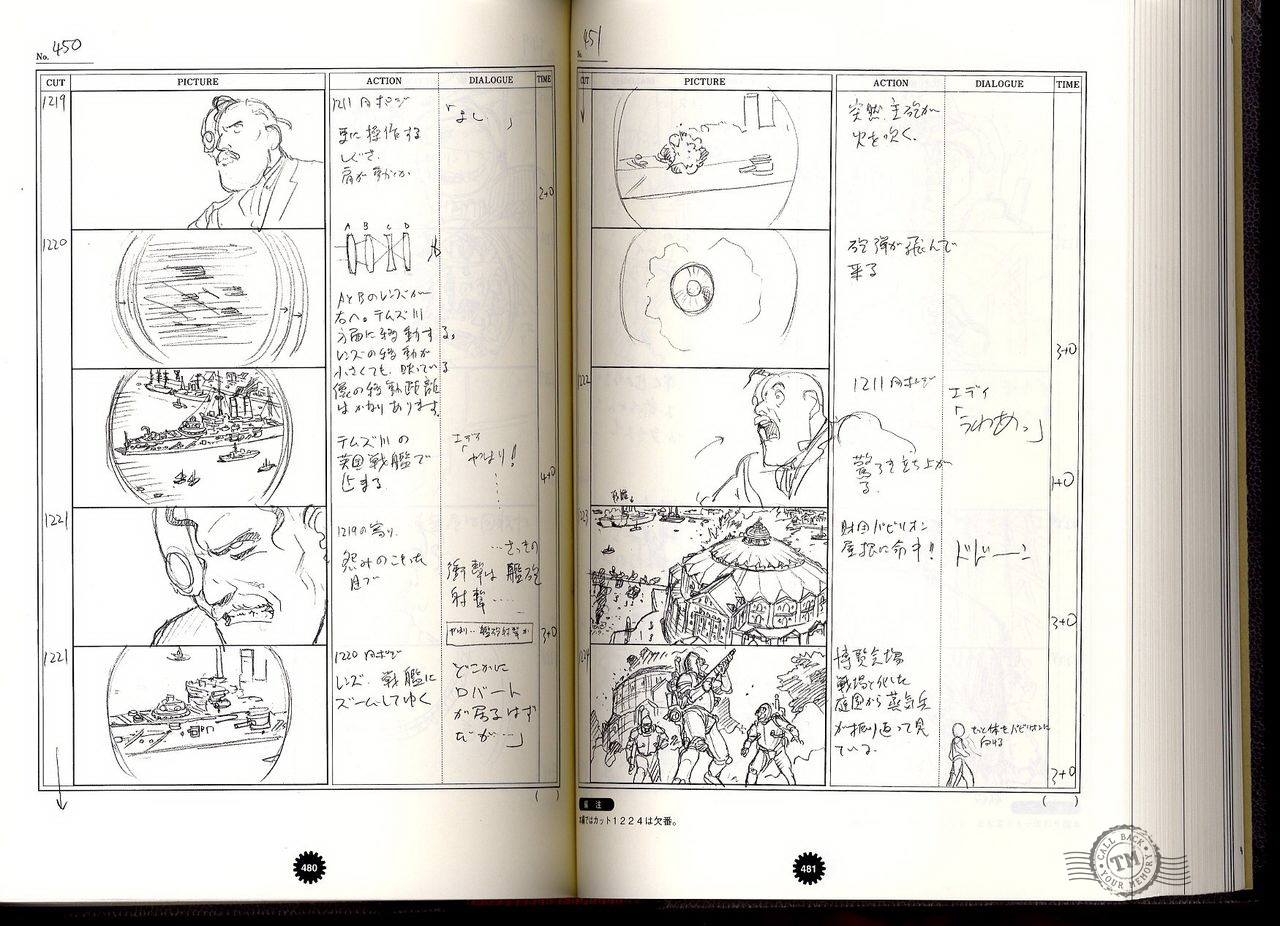 No. 450
CUT PICTURE ACTION DIALOGUE TIME
1219
1211 内ポジ
更に操作する
しぐさ.
肩が動くか
「よし」
3+0
1220
A B C D
AとBのレンズが
右へ。テムズ川
方面に移動する。
レンズの移動が
小さくても、映っている
像の移動距離
はかなりあります。
テムズ川の
英国戦艦で
止まる
エディ
「やはり!
4+0
1221
1219の寄り.
怨みのこもった
目で
…さっきの
衝撃は艦砲
射撃……
やはり…艦砲射撃か
3+0
1221
1220 内ポジ
レンズ、戦艦に
ズームしてゆく
どこかに
ロバート
が居るはず
だが…」
480
451
CUT PICTURE ACTION DIALOGUE TIME
突然、主砲が
火を吹く.
砲弾が飛んで
来る
3+0
1222
1211 内ポジ
驚き立ち上が
る.
エディ
「うわあっ」
1+0
財団パビリオン
屋根に命中!!
ドドーーン
3+0
1224
博覧会場
戦場と化した
庭園から蒸気兵
が振り返って見
ている.
もっと体をパビリオンに
向ける
3+0
備 注
本編ではカット1224は欠番。
481
CALL BACK
TM
YOUR MEMORY